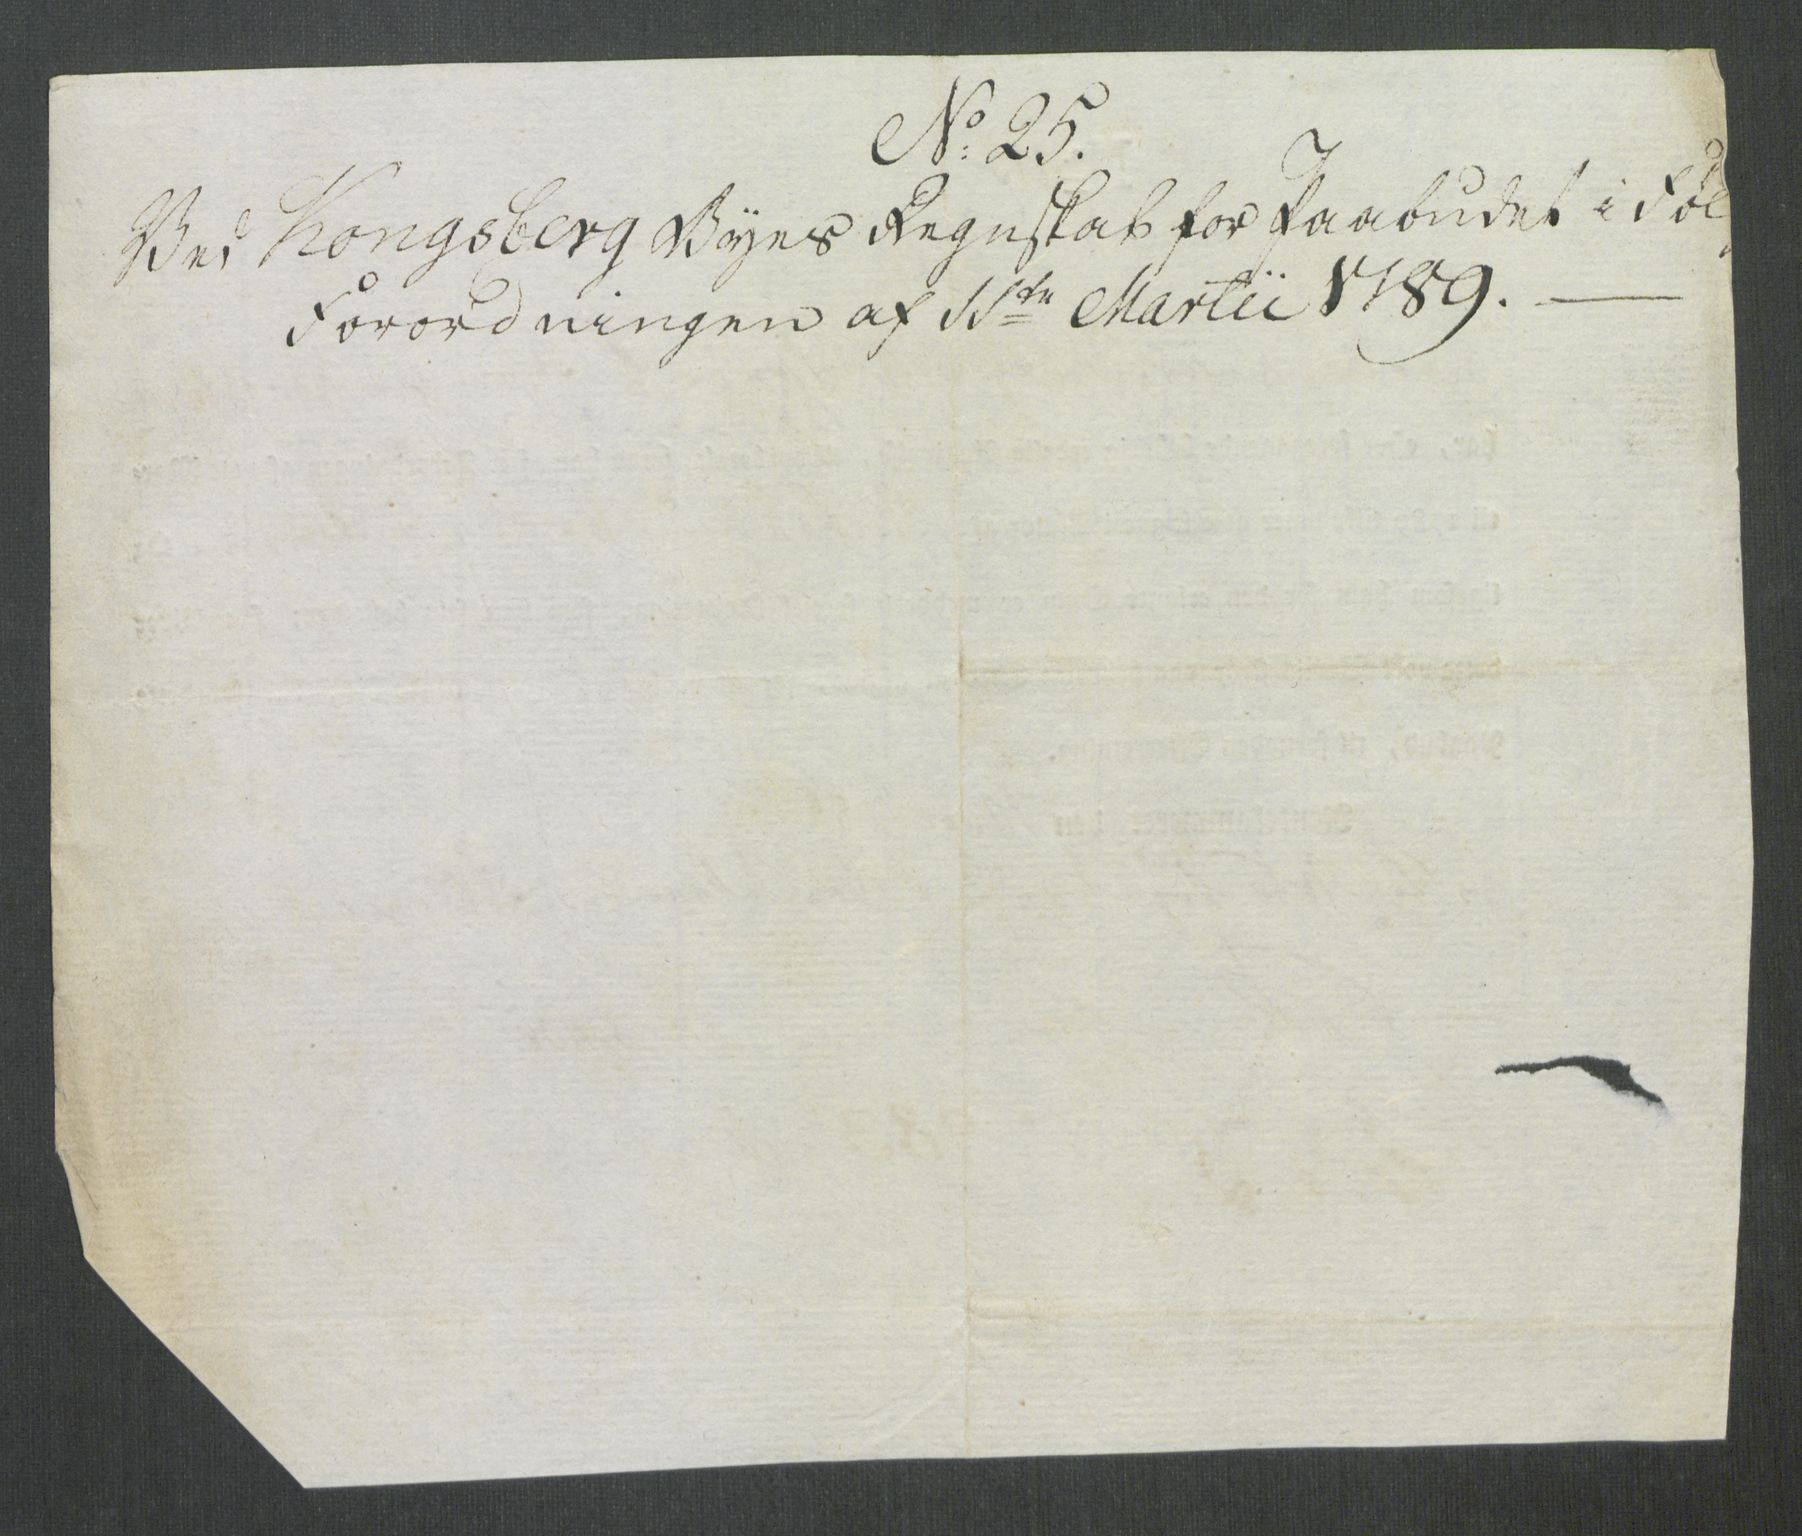 No: 25.
Ved Kongsberg Byes Regnskab for Paabudet i Føl
Forordningen af 11te Martii 1789.